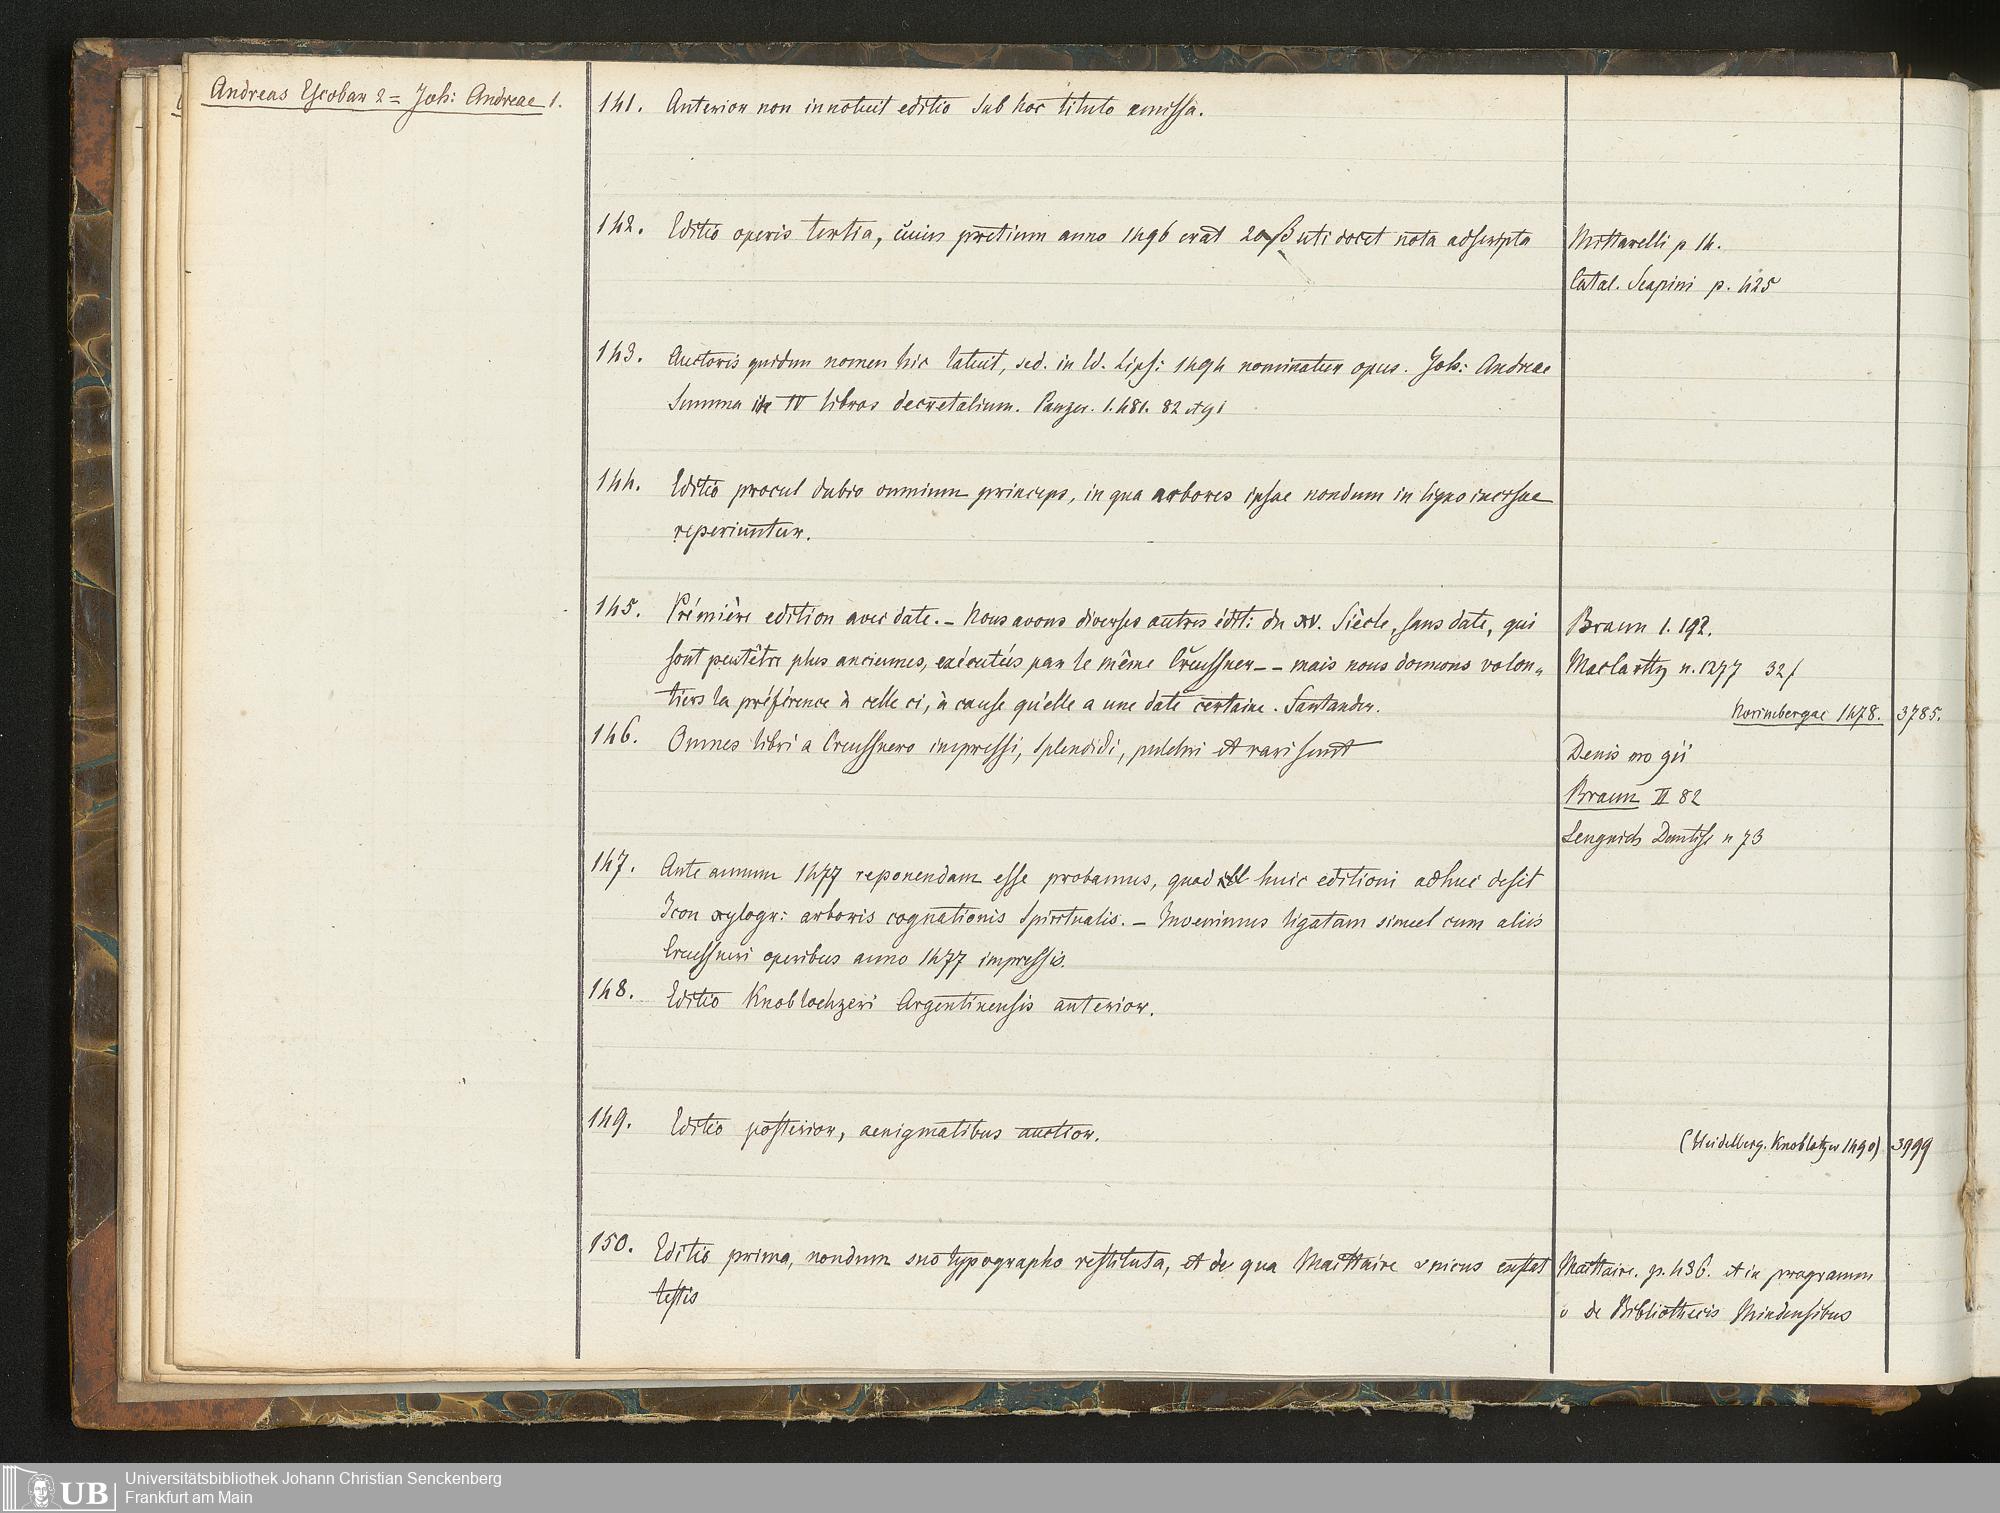 Andreas Escobar 2 = Joh: Andreae 1.
141. Anterior non innotuit editio sub hoc titulo emissa.
142. Editio operis tertia, cuius pretium anno 1496 erat 20 β uti docet nota adscripta
Mittarelli p 14.
Catal. Scapini p. 425
143. Auctoris quidem nomen hic latuit, sed. in Ed. Lips: 1494 nominatur opus. Joh: Andreae
Summa in IV libros decretalium. Panzer. 1. 481. 82 et 91
144. Editio procul dubio omnium princeps, in qua arbores ipsae nondum in ligno incisae
reperiuntur.
145. Prémière edition avec date. – Nous avons diverses autres édit: du XV. Siècle, sans date, qui
sont peutêtre plus anciennes, exécutées par le même Creussner – – mais nous donnons volon„
tiers la préférence à celle ci, à cause qu'elle a une date certaine. Santander.
Braun 1. 192.
MacCarthy n. 1277 32 f
Norimbergae 1478. 3785.
146. Omnes libri a Creussnero impressi, splendidi, pulchri et rari sunt
Denis
Braun II 82
Lengnich n 73
147. Ante annum 1477 reponendam esse probamus, quod huic editioni adhuc desit
Icon xylogr: arboris cognationis Spiritualis. – Invenimus ligatam simul cum aliis
Creussneri operibus anno 1477 impressis.
148. Editio Knoblochzeri Argentinensis anterior.
149. Editio posterior, aenigmatibus auctior.
(Heidelberg. Knoblotzer 1490) 3999
150. Editio prima, nondum suo typographo restituta, et de qua Maittaire unicus exstat
testis
Maittaire. p. 436. et in programm
de Bibliothecis Mindensibus
UB
Universitätsbibliothek Johann Christian Senckenberg
Frankfurt am Main